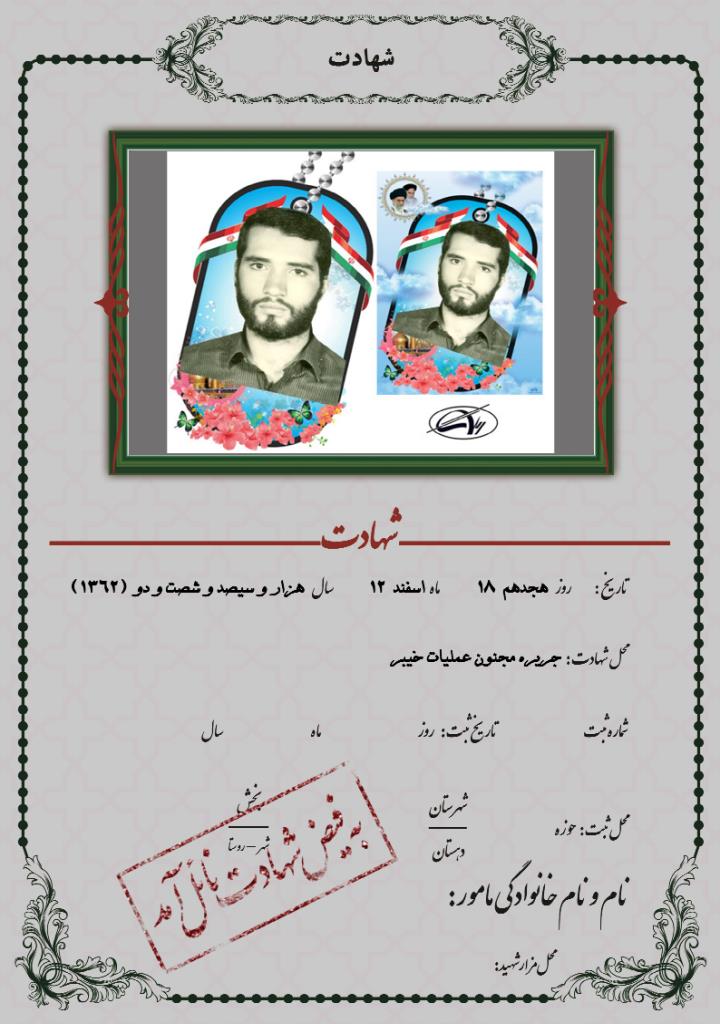 شهادت
شهادت
تاریخ: روز هجدهم ۱۸ ماه اسفند ۱۲ سال هزار و سیصد و شصت و دو (۱۳۶۲)
محل شهادت: جزیره مجنون عملیات خیبر
شماره ثبت تاریخ ثبت: روز ماه سال
محل ثبت: حوزه شهرستان بخش
دهستان شهر – روستا
به فیض شهادت نائل آمد
نام و نام خانوادگی مامور:
محل مزار شهید: